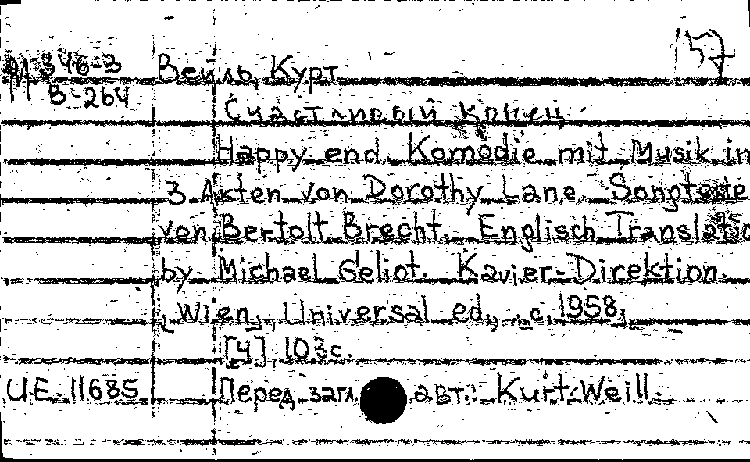 57
М 346-3 Вейль, Курт
В-264
Счастливый конец.
Happy end. Komödie mit Musik in
3 Akten von Dorothy Lane. Songtexte
von Bertolt Brecht. Englisch Translatio
by Michael Geliot. Kavier-Direktion.
Wien, Universal ed., c. 1958,
[4], 103с.
U.E. 11685 Перед загл. авт.: Kurt Weill.